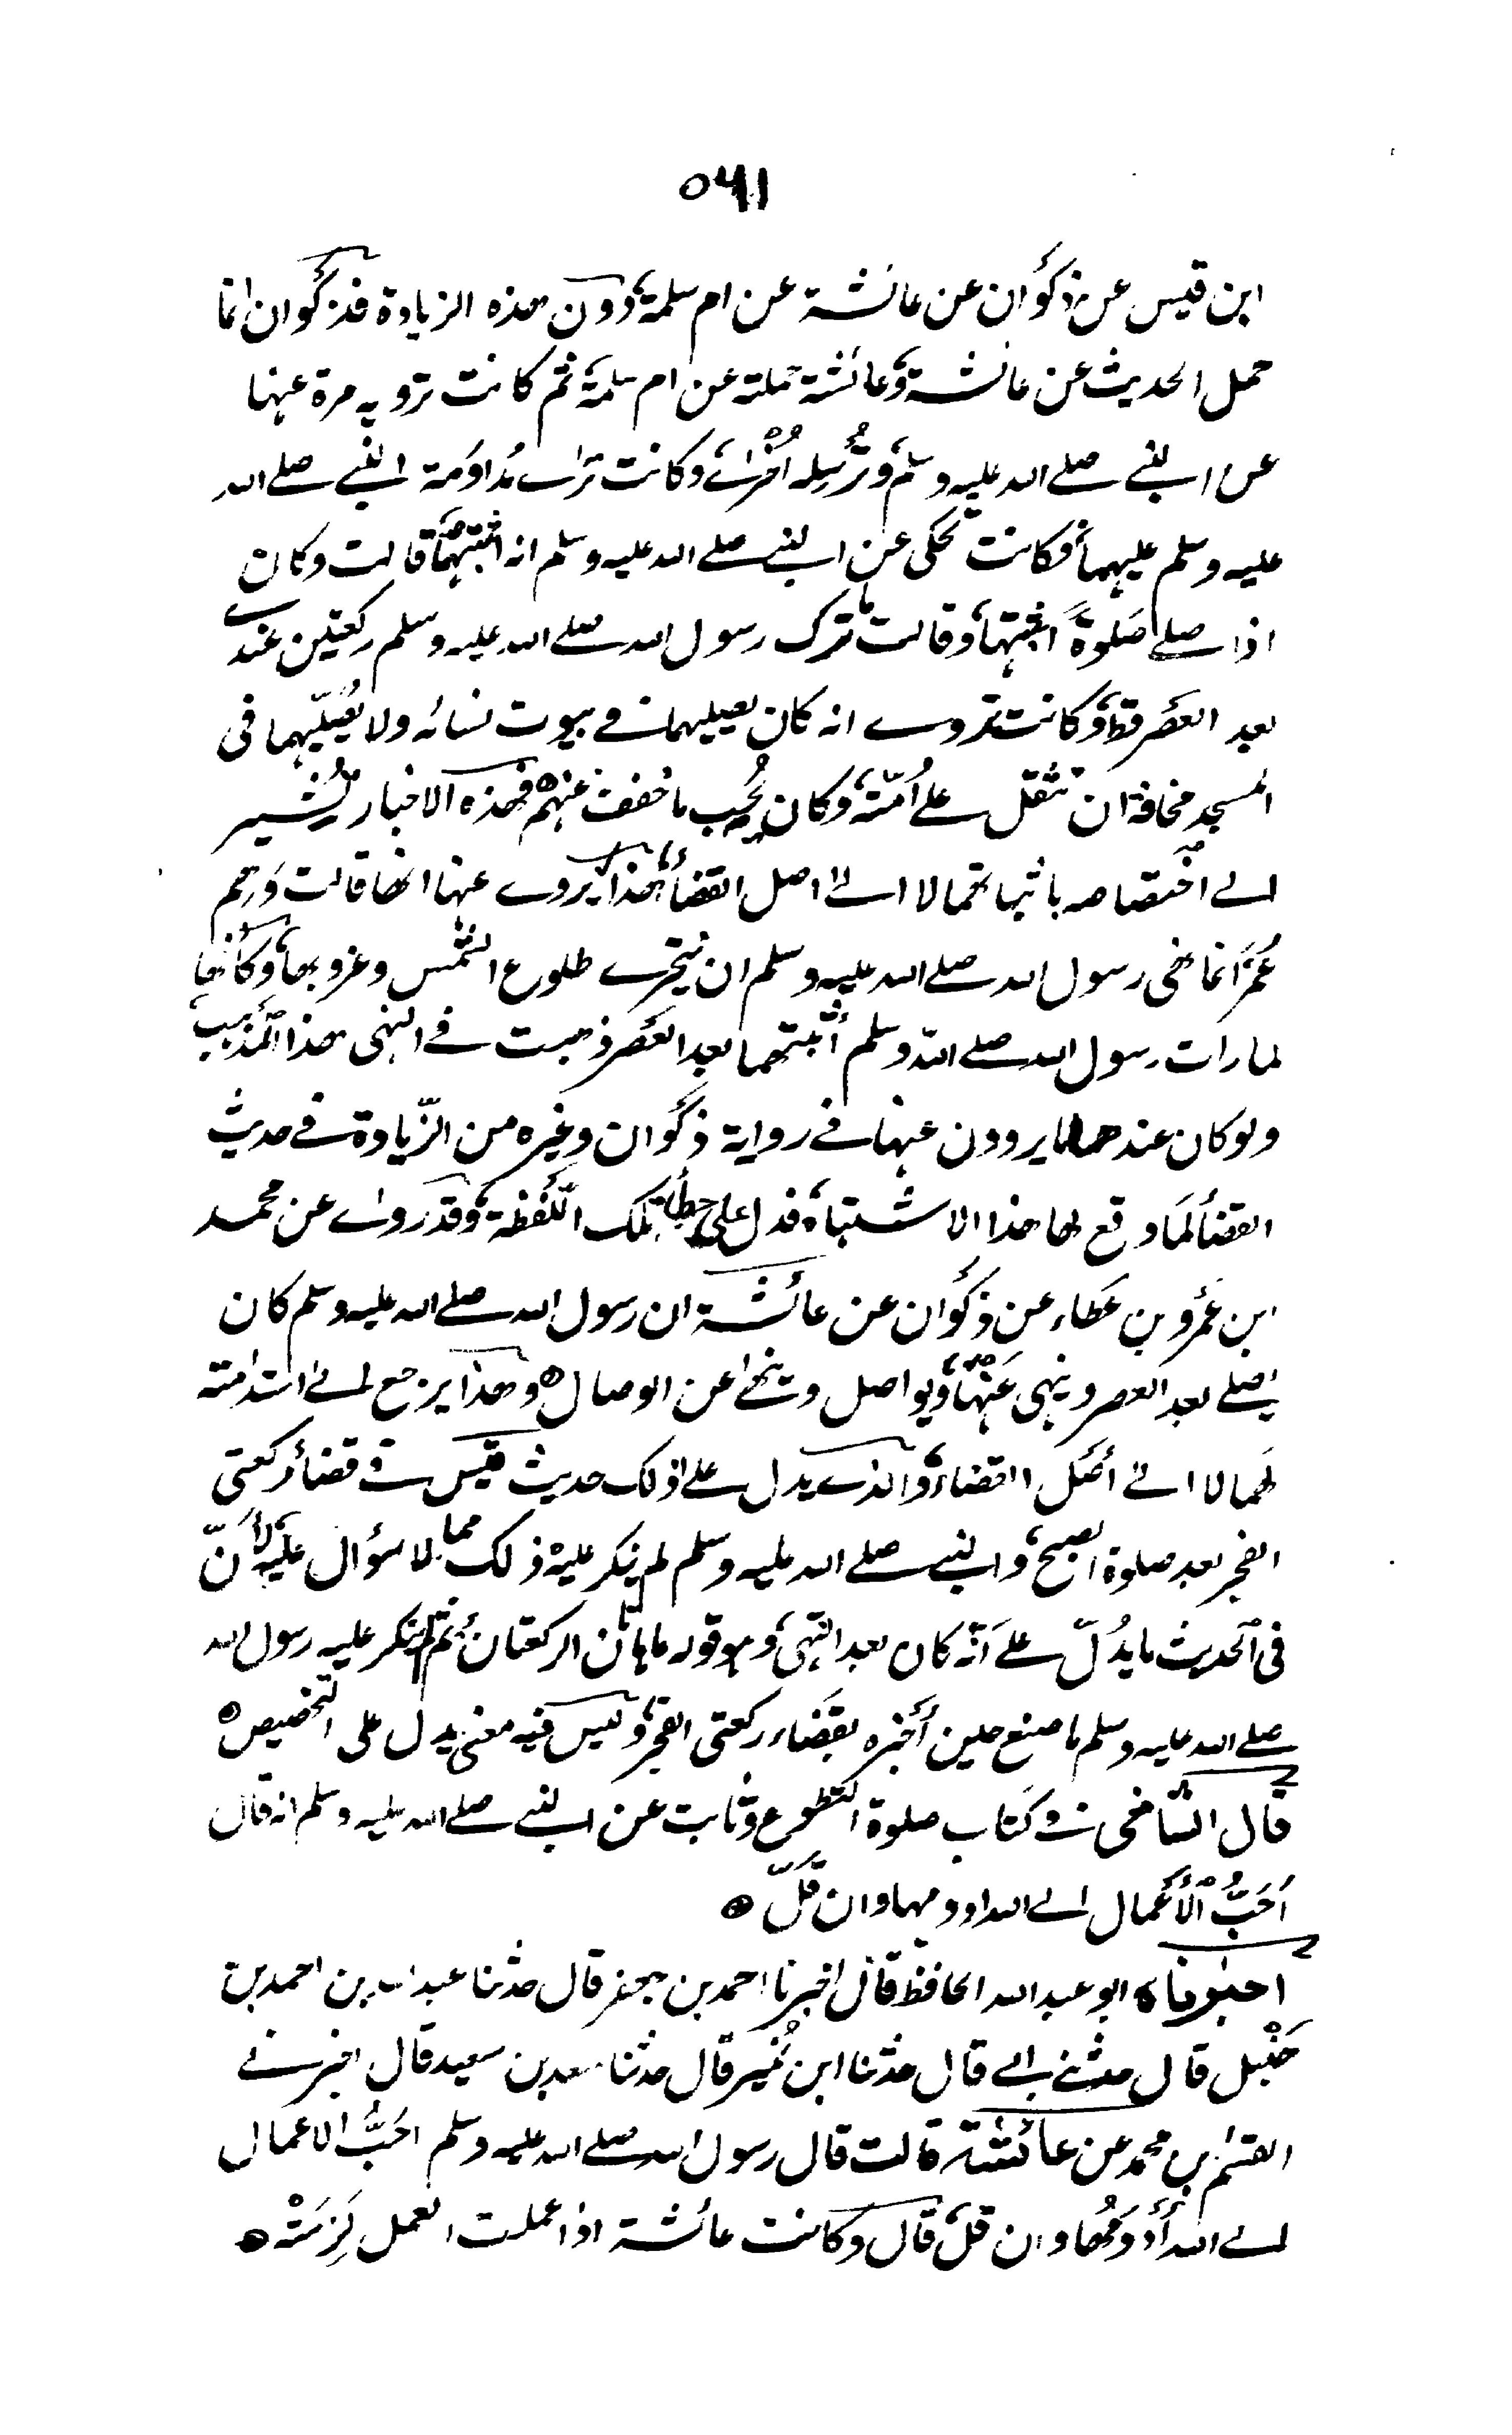 ٥٦١
ابن قيس عن ذكوان عن عائشة عن ام سلمة دون هذه الزيادة فذكوان انما
حمل الحديث عن عائشة وعائشة حملته عن ام سلمة ثم كانت ترويه مرة عنها
عن النبي صلى الله عليه وسلم وترسله اخرى وكانت ترى مداومة النبي صلى الله
عليه وسلم عليهما فكانت تحكى عن النبي صلى الله عليه وسلم انه اثبتهما قالت وكان
اذا صلى صلوة اثبتها وقالت ما ترك رسول الله صلى الله عليه وسلم ركعتين عندي
بعد العصر قط وكانت تروى انه كان يصليهما في بيوت نسائه ولا يصليهما فى
المسجد مخافة ان تثقل على امته وكان يحب ما خفف عنهم فهذه الاخبار تشير
الى اختصاصه باثباتهما لا الى اصل القضاء هذا يروى عنها انها قالت وهم
عمر انما نهى رسول الله صلى الله عليه وسلم ان يتحرى طلوع الشمس وغروبها وكأنها
لما رات رسول الله صلى الله وسلم أثبتهما بعد العصر ذهبت في النهى هذا المذهب
ولو كان عندها ما يروون عنها في رواية ذكوان وغيره من الزيادة في حديث
القضاء لما وقع لها هذا الاشتباه فدل على خطأ تلك اللفظة وقد روى عن محمد
ابن عمرو بن عطاء عن ذكوان عن عائشة ان رسول الله صلى الله عليه وسلم كان
يصلي بعد العصر وينهى عنها ويواصل وينهى عن الوصال وهذا يرجع الى استدامته
لهما لا الى أصل القضاء والذى يدل على ذلك حديث قيس في قضاء ركعتى
الفجر بعد صلوة الصبح والنبي صلى الله عليه وسلم لم ينكر عليه ذلك مما لا سؤال عليه لأن
فى الحديث ما يدل على أنه كان بعد النهى وهو قوله ما هاتان الركعتان ثم لم ينكر عليه رسول الله
صلى الله عليه وسلم ما صنع حين أخبره بقضاء ركعتى الفجر وليس فيه معنى يدل على التخصيص
قال الشافعى في كتاب صلوة التطوع وثابت عن النبي صلى الله عليه وسلم انه قال
أحب الأعمال الى الله ادومها وان قل
اخبرناه ابو عبد الله الحافظ قال اخبرنا احمد بن جعفر قال حدثنا عبد الله بن احمد بن
حنبل قال حدثني ابي قال حدثنا ابن نمير قال حدثنا سعد بن سعيد قال اخبرني
القسم بن محمد عن عائشة قالت قال رسول الله صلى الله عليه وسلم احب الاعمال
الى الله أدومها وان قل قال وكانت عائشة اذا عملت العمل لزمته